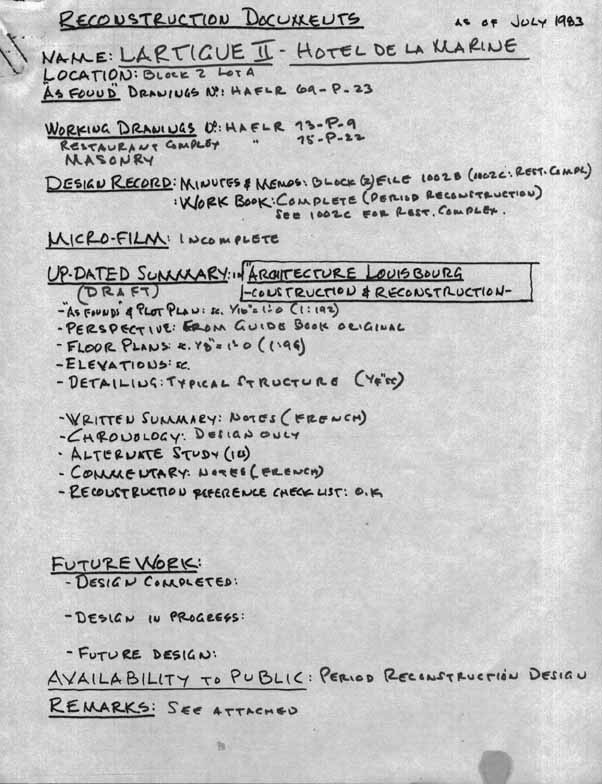 RECONSTRUCTION DOCUMENTS AS OF JULY 1983
NAME: LARTIGUE II - HOTEL DE LA MARINE
LOCATION: BLOCK 2 LOT A
"AS FOUND" DRAWINGS Nº: HAFLR 69-P-23
WORKING DRAWINGS Nº: HAFLR 73-P-9
RESTAURANT COMPLEX " 75-P-22
MASONRY
DESIGN RECORD: MINUTES & MEMOS: BLOCK (2) FILE 1002B (1002C: REST. COMPL)
: WORK BOOK: COMPLETE (PERIOD RECONSTRUCTION)
SEE 1002C FOR REST. COMPLEX.
MICRO-FILM: INCOMPLETE
UP-DATED SUMMARY: in "ARCHITECTURE LOUISBOURG
(DRAFT) -CONSTRUCTION & RECONSTRUCTION-
- "AS FOUND" & PLOT PLAN: sc. 1/16"=1'-0 (1:192)
- PERSPECTIVE: FROM GUIDE BOOK ORIGINAL
- FLOOR PLANS: sc. 1/8"=1'-0 (1:96)
- ELEVATIONS: sc.
- DETAILING: TYPICAL STRUCTURE (1/4" sc)
- WRITTEN SUMMARY: NOTES (FRENCH)
- CHRONOLOGY: DESIGN ONLY
- ALTERNATE STUDY
- COMMENTARY: NOTES (FRENCH)
- RECONSTRUCTION REFERENCE CHECK LIST: O.K
FUTURE WORK:
- DESIGN COMPLETED:
- DESIGN IN PROGRESS:
- FUTURE DESIGN:
AVAILABILITY TO PUBLIC: PERIOD RECONSTRUCTION DESIGN
REMARKS: SEE ATTACHED